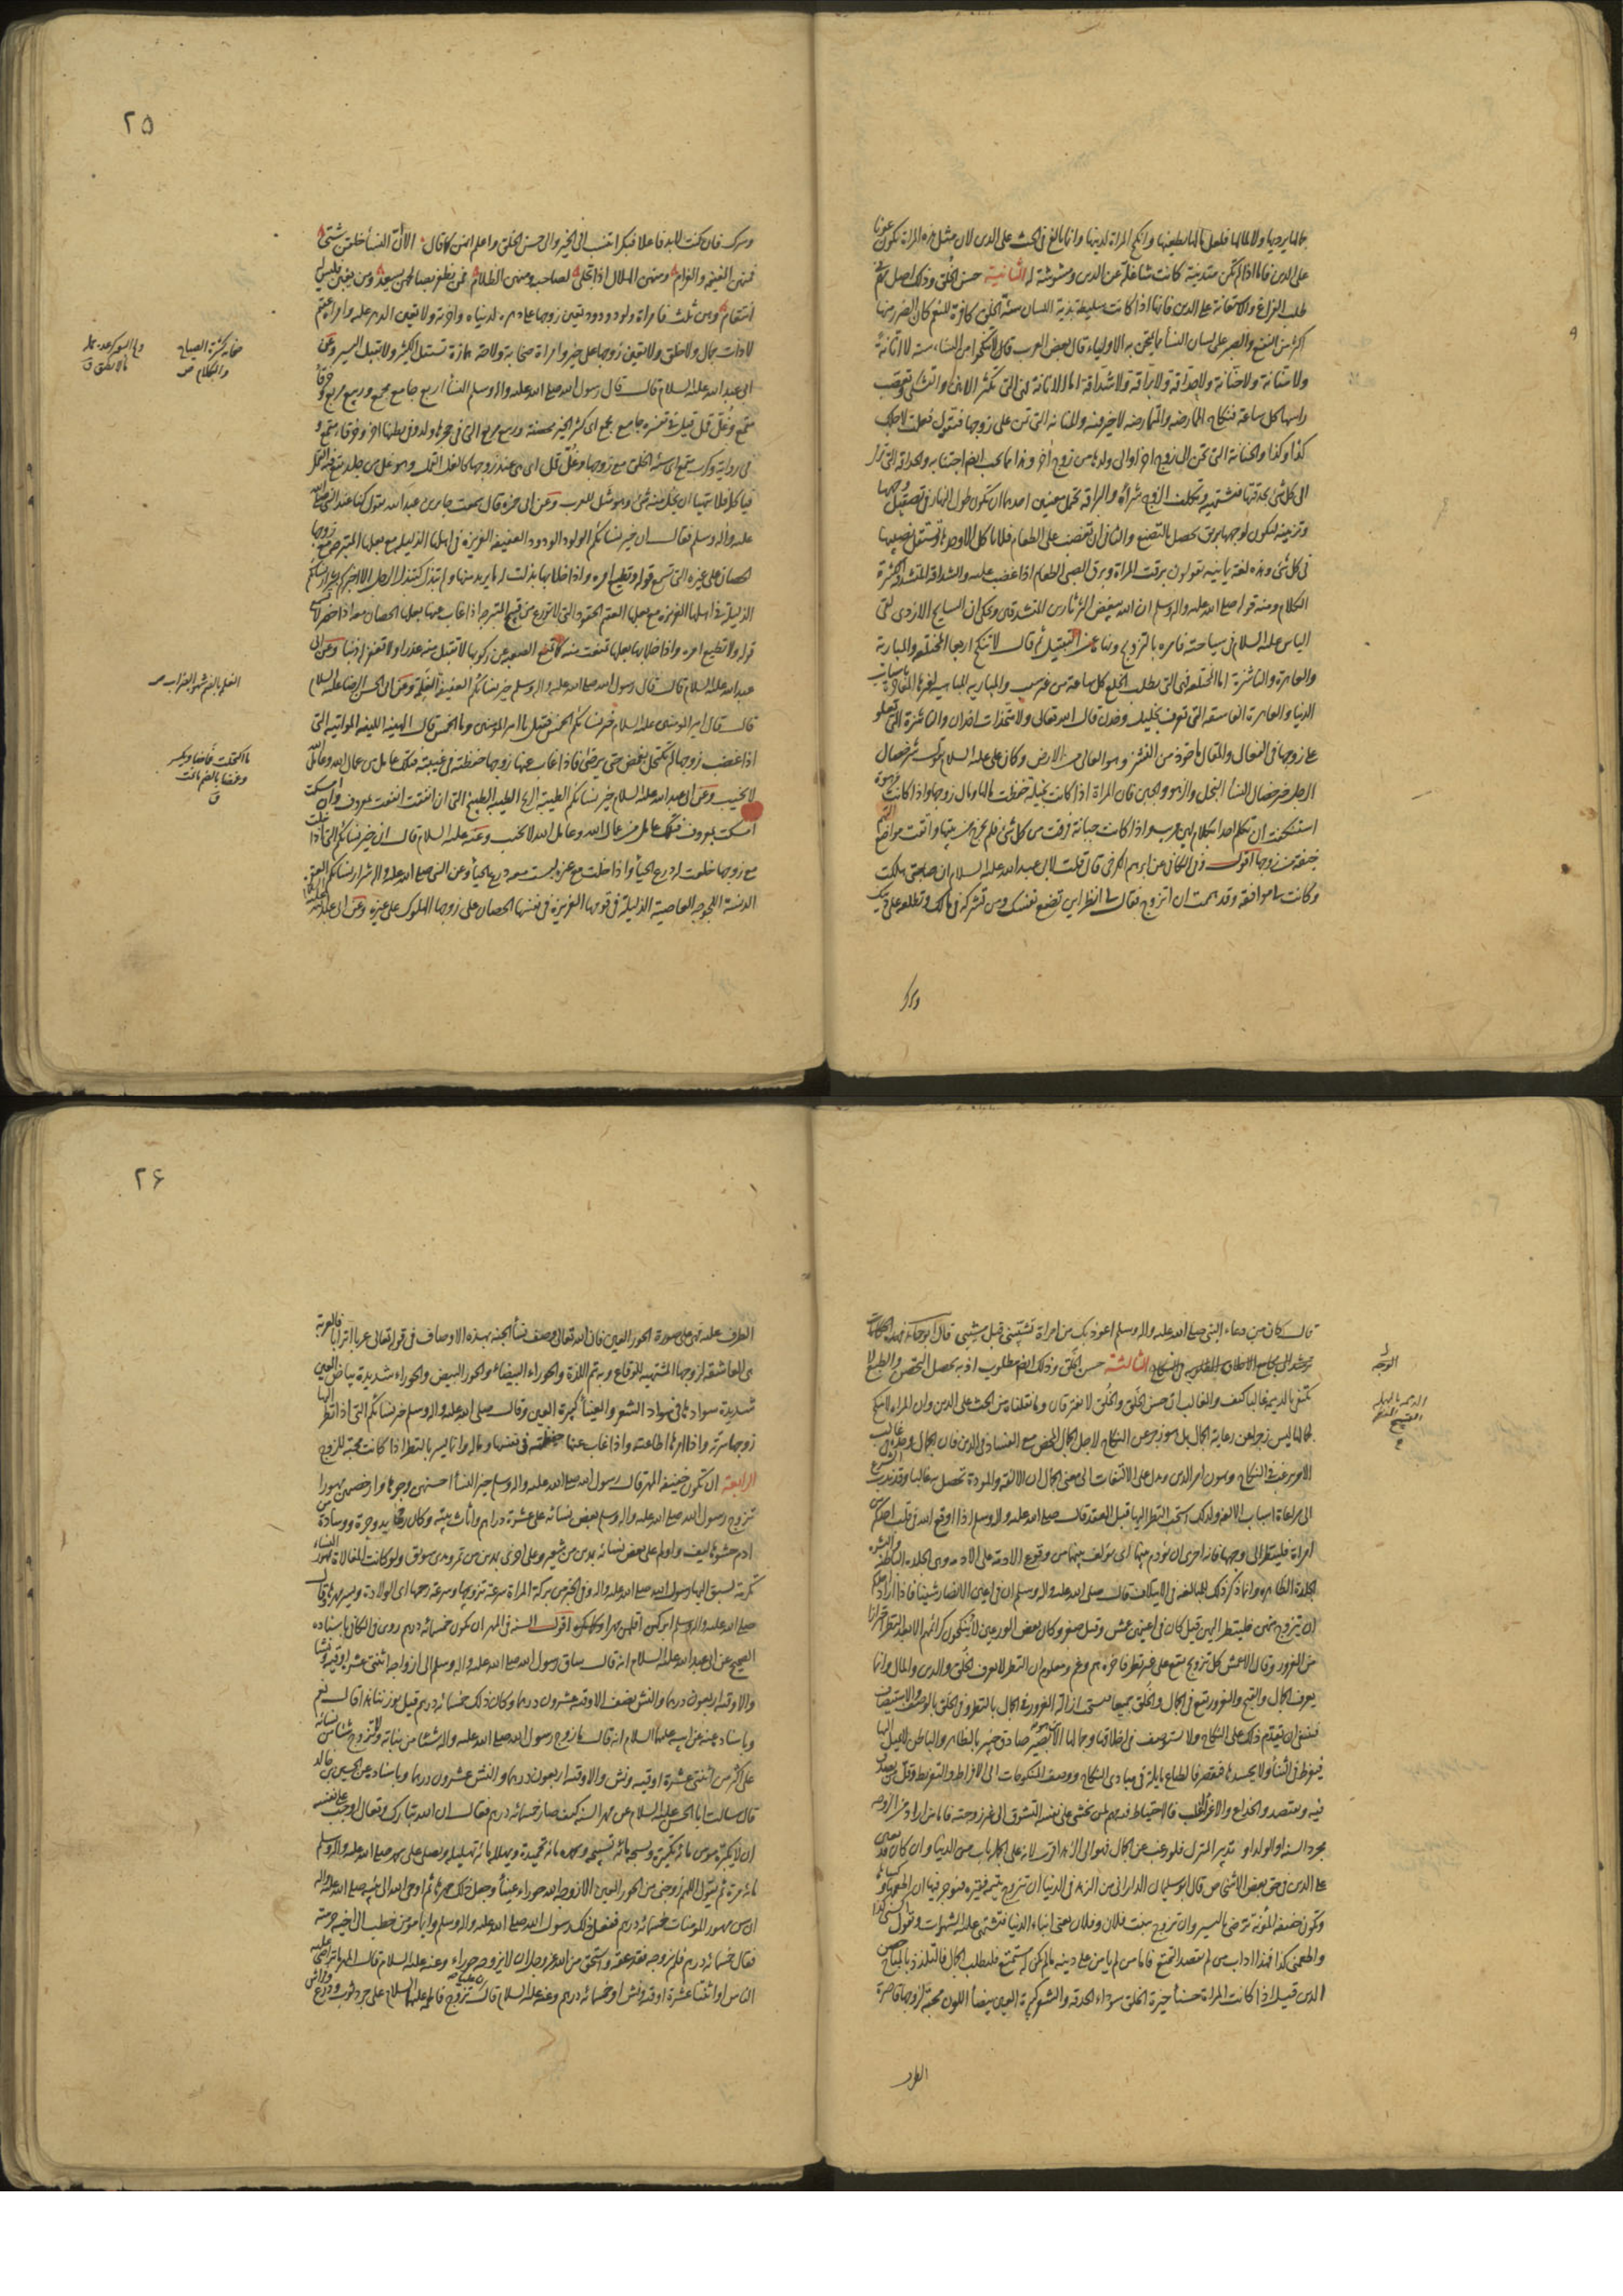 جمالها يرديها ولا لمالها فلعل مالها يطغيها وانكح المراة لدينها وانما بالغ في الحث على الدين لان مثل هذه المراة تكون عونا
على الدين فاما اذا لم تكن متدينة كانت شاغلة عن الدين ومشوشة له الثانية حسن الخلق وذلك اصل مهم في
طلب الفراغ والاستعانة على الدين فانها اذا كانت سليطة بذية اللسان سيئة الخلق كافرة للنعم كان الضرر منها
اكثر من النفع والصبر على لسان النسأ مما يمتحن به الاولياء قال بعض العرب قال لا تنكحوا من النساء ستة لا انانة
ولا منانة ولا حنانة ولا حداقة ولا براقة ولا شداقة اما الانانة فهي التي تكثر الانين والتشكي وتعصب
راسها كل ساعة فنكاح الممارضه او المتمارضه لا خير فيه والمنانه التي تمن على زوجها فتقول فعلت لاجلك
كذا وكذا والحنانة التي تحن الى زوج اخر او الى ولدها من زوج اخر وهذا مما يجب ايضا اجتنابه والحداقه التي ترمي
الى كل شي بحدقتها فتشتهيه وتكلف الزوج شراؤه والبراقه تحتمل معنيين احدهما ان تكون طول النهار في تصقيل وجهها
وتزينه ليكون لوجهها بريق يحصل بالتصنع والثاني ان تغضب على الطعام فلا تاكل الا وحدها وتستقل نصيبها
في كل شي وهذه لغة يمانيه يقولون برقت المراة وبرق الصبي الطعام اذا غضب عليه والشداقة المتشدقة الكثيرة
الكلام ومنه قوله صلى الله عليه واله وسلم ان الله يبغض الثرثارين المتشدقين وحكى ان السايح الازدي لقي
الياس عليه السلام في سياحته فامره بالتزوج ونهاه عن التبتل ثم قال لا تنكح اربعا المختلعة والمبارية
والعاهرة والناشزة اما المختلعه فهي التي تطلب الخلع كل ساعة من غير سبب والمباريه المباهيه لغيرها المفاخرة باسباب
الدنيا والعاهرة الفاسقه التي تعرف بخليل وخدن قال الله تعالى ولا متخذات اخدان والناشزة التي تعلو
على زوجها في الفعال والمقال ماخوذ من النشز وهو العالي من الارض وكان علي عليه السلام يقول شر خصال
الرجل خير خصال النسأ البخل والزهو والجبن فان المراة اذا كانت بخيلة حفظت مالها ومال زوجها واذا كانت مزهوة
استنكفت ان تكلم احدا بكلام لين مريب واذا كانت جبانة فرقت من كل شي فلم تخرج من بيتها واتقت مواضع
خيفة من زوجها اقول وفي الكافي عن ابراهيم الكرخي قال قلت لابي عبد الله عليه السلام ان صاحبتي هلكت
وكانت لي موافقه وقد هممت ان اتزوج فقال لي انظر اين تضع نفسك ومن تشركه في مالك وتطلعه على دينك
٢٥
وسرك فان كنت لابد فاعلا فبكرا تنسب الى الخير والى حسن الخلق واعلم انهن كما قال الا ان النسأ خلقن شتى
فمنهن الغنيمه والغرام ومنهن الهلال اذا تجلى لصاحبه ومنهن الظلام فمن يظفر بصالحهن يسعد ومن يغبن فليس له
انتقام وهن ثلث فامراة ولود ودود تعين زوجها على دهره لدنياه واخرته ولا تعين الدهر عليه وامراة عقيم
لا ذات جمال ولا خلق ولا تعين زوجها على خير وامراة صخابة ولاجة همازة تستقل الكثير ولا تقبل اليسير وعن
ابي عبد الله عليه السلام قال قال رسول الله صلى الله عليه واله وسلم النسأ اربع جامع مجمع وربيع مربع وخرقاء
مقمع وغل قمل قيل في تفسيره جامع مجمع اي كثيرة الخير مخصبة وربيع مربع التي في حجرها ولد وفي بطنها اخر وخرقاء مقمع و
في رواية وكرب مقمع اي سيئة الخلق مع زوجها وغل قمل اي هي عند زوجها كالغل القمل وهو غل من جلد يقع فيه القمل
فياكله فلا يتهيا ان يحل منه شي وهو مثل للعرب وعن ابي حمزه قال سمعت جابر بن عبد الله يقول كنا عند النبي صلى الله
عليه واله وسلم فقال ان خير نسائكم الولود الودود العفيفه العزيزه في اهلها الذليله مع بعلها المتبرجة مع زوجها
الحصان على غيره التي تسمع قوله وتطيع امره واذا خلا بها بذلت له ما يريد منها ولم تبذل كتبذل الرجل الا اخبركم بشرار نسائكم
الذليلة في اهلها العزيزه مع بعلها العقيم الحقود التي لا تتورع من قبيح المتبرجه اذا غاب عنها بعلها الحصان معه اذا حضر لا تسمع
قوله ولا تطيع امره واذا خلا بها بعلها تمنعت منه كما تمنع الصعبه عن ركوبها لا تقبل منه عذرا ولا تغفر له ذنبا وعن ابي
عبد الله عليه السلام قال قال رسول الله صلى الله عليه واله وسلم خير نسائكم العفيفه الغلمة وعن ابي الحسن الرضا عليه السلام
قال قال امير المومنين عليه السلام خير نسائكم الخمس فقيل يا امير المومنين وما الخمس قال الهينه اللينه المواتيه التي
اذا غضب زوجها لم تكتحل بغمض حتى يرضى فاذا غاب عنها زوجها حفظته في غيبته فتلك عامل من عمال الله وعامل الله
لا يخيب وعن ابي عبد الله عليه السلام خير نسائكم الطيبة الريح الطيبه الطبيخ التي ان انفقت انفقت بمعروف وان امسكت
امسكت بمعروف فتلك عامل من عمال الله وعامل الله لا يخيب وعنه عليه السلام قال ان خير نسائكم التي اذا خلت
مع زوجها خلعت له درع الحيأ واذا خلت مع غيره لبست معه درع الحيأ وعن النبي صلى الله عليه واله شرار نسائكم العقيم
الدنسة اللجوجه العاصية الذليلة في قومها العزيزه في نفسها الحصان على زوجها الهلوك على غيره وعن ابي عبد الله عليه السلام
صخابه كثيرة الصياح والكلام ص
الغلمه بالضم شهوة الضراب ص
ما اكتحلت غماضا ويكسر وغمضا بالضم ما نمت ق
قال كان من دعاء النبي صلى الله عليه واله وسلم اعوذ بك من امراة تشيبني قبل مشيبي قال ابو حامد فهذه الكلمات
ترشد الى مجامع الاخلاق المطلوبه في النكاح الثالثة حسن الخلق وذلك ايضا مطلوب اذ به يحصل التحصن والطبع لا
يكتفي بالدميمة غالبا كيف والغالب ان حسن الخلق والخلق لا يفترقان وما نقلناه من الحث على الدين وان المراه لا تنكح
لجمالها ليس زجرا عن رعاية الجمال بل هو زجر عن النكاح لاجل الجمال المحض مع الفساد في الدين فان الجمال وحده في غالب
الامر يرغب في النكاح ويهون امر الدين ويدل على الالتفات الى معنى الجمال ان الالفة والمودة تحصل به غالبا وقد ندب الشرع
الى مراعاة اسباب الالفه ولذلك استحب النظر اليها قبل العقد قال صلى الله عليه واله وسلم اذا اوقع الله في قلب احدكم من
امراة فلينظر الى وجهها فانه احرى ان يؤدم بينهما اي يؤلف بينهما من وقوع الادمة على الادمه وهي الجلدة الباطنة والبشره
الجلدة الظاهره وانما ذكر ذلك للمبالغه في الايتلاف قال صلى الله عليه واله وسلم ان في اعين الانصار شيئا فاذا اراد احدكم
ان يتزوج منهن فلينظر اليهن قيل كان في اعينهن عمش وقيل صغر وكان بعض الورعين لا ينكحون كرائمهم الا بعد النظر احترازا
من الغرور وقال الاعمش كل تزويج يقع على غير نظر فاخره هم وغم ومعلوم ان النظر لا يعرف الخلق والدين والمال وانما
يعرف الجمال والقبح والغرور يقع في الجمال والخلق جميعا فيستحب ازالة الغرور في الجمال بالنظر وفي الخلق بالوصف والاستيصاف
فينبغي ان يقدم ذلك على النكاح ولا يستوصف في اخلاقها وجمالها الا من هو بصير صادق خبير بالظاهر والباطن لا يميل اليها
فيفرط في الثنأ ولا يحسدها فيقصر فالطباع مايلة في مبادي النكاح ووصف المنكوحات الى الافراط والتفريط وقل من يصدق
فيه ويقتصد والخداع والاغرأ اغلب فالاحتياط فيه مهم لمن يخشى على نفسه التشوق الى غير زوجته فاما من اراد من الزوجه
مجرد السنه او الولد او تدبير المنزل فلو رغب عن الجمال فهو الى الزهد اقرب لانه على الجملة باب من الدنيا وان كان قد يعين
على الدين في حق بعض الاشخاص قال ابو سليمان الداراني من الزهد في الدنيا ان تتزوج يتيمة فقيره فيؤجر فيها ان اطعمها وكساها
وتكون خفيفه المؤنة ترضى باليسير وان تزوج بنت فلان وفلان يعني ابناء الدنيا فتشتهي عليه الشهوات وتقول اكسني كذا
واطعمني كذا فهذا اداب من لم يقصد التمتع فاما من لم يامن على دينه ما لم يكن له مستمتع فليطلب الجمال فالتلذذ بالمباح حصن
الدين قيل اذا كانت المراة حسنأ خيرة الخلق سوداء الحدقه والشعر كبيرة العين بيضأ اللون محبة لزوجها قاصرة
الطرف
٢٦
الطرف عليه فهي على صورة الحور العين فان الله تعالى وصف نسأ الجنه بهذه الاوصاف في قوله تعالى عربا اترابا فالعربة
هي العاشقة لزوجها المشتهيه للوقاع وبه يتم اللذة والحوراء البيضاء والحور البيض والحوراء شديدة بياض العين
شديدة سوادها في سواد الشعر والعينأ كبيرة العين وقال صلى الله عليه واله وسلم خير نسائكم التي اذا نظر اليها
زوجها سرته واذا امرها اطاعته واذا غاب عنها حفظته في نفسها وماله وانما يسر بالنظر اذا كانت محبة للزوج
الرابعة ان تكون خفيفه المهر قال رسول الله صلى الله عليه واله وسلم خير النسأ احسنهن وجوها وارخصهن مهورا
تزوج رسول الله صلى الله عليه واله وسلم بعض نسائه على عشرة دراهم واثاث بيته وكان رحا يد وجرة ووسادة من
ادم حشوها ليف واولم على بعض نسائه بمدين من شعير وعلى اخرى بمدين من تمر ومدي سويق ولو كانت المغالاة بمهور النساء
مكرمة لسبق اليها رسول الله صلى الله عليه واله وفي الخبر من بركة المراة سرعة تزويجها وسرعة رحمها اي الولادة ويسر مهرها وقال
صلى الله عليه واله وسلم ابركهن اقلهن مهرا اقول السنه في المهر ان يكون خمسمائه درهم روى في الكافي باسناده
الصحيح عن ابي عبد الله عليه السلام انه قال ساق رسول الله صلى الله عليه واله وسلم الى ازواجه اثنتي عشره اوقيه ونشا
والاوقيه اربعون درهما والنش نصف الاوقيه عشرون درهما وكان ذلك خمسمائة درهم قيل بوزننا هذا قال نعم
وباسناده عنه عن ابيه عليهما السلام انه قال ما زوج رسول الله صلى الله عليه واله شيئا من بناته ولا تزوج شيئا من نسائه
على اكثر من اثنتي عشرة اوقيه ونش والاوقيه اربعون درهما والنش عشرون درهما وباسناده عن الحسين بن خالد
قال سالت ابا الحسن عليه السلام عن مهر السنه كيف صار خمسمائه درهم فقال ان الله تبارك وتعالى اوجب على نفسه
ان لا يكبره مومن مائة تكبيرة ويسبحه مائة تسبيحه ويحمده مائة تحميدة ويهلله مائة تهليله ويصلي على محمد صلى الله عليه واله وسلم
مائه مرة ثم يقول اللهم زوجني من الحور العين الا زوجه الله حوراء عينأ وجعل ذلك مهرها ثم اوحى الله الى نبيه صلى الله عليه واله
ان سن مهور المومنات خمسمائه درهم ففعل ذلك رسول الله صلى الله عليه واله وسلم وايما مؤمن خطب الى اخيه حرمته
فقال خمسمائه درهم فلم يزوجه فقد عقه واستحق من الله عز وجل ان لا يزوجه حوراء وعنه عليه السلام قال المهر ما تراضى عليه
الناس او اثنتا عشرة اوقيه ونش او خمسمائه درهم وعنه عليه السلام قال تزوج علي فاطمه عليهما السلام على جرد ثوب ودرع وفراش